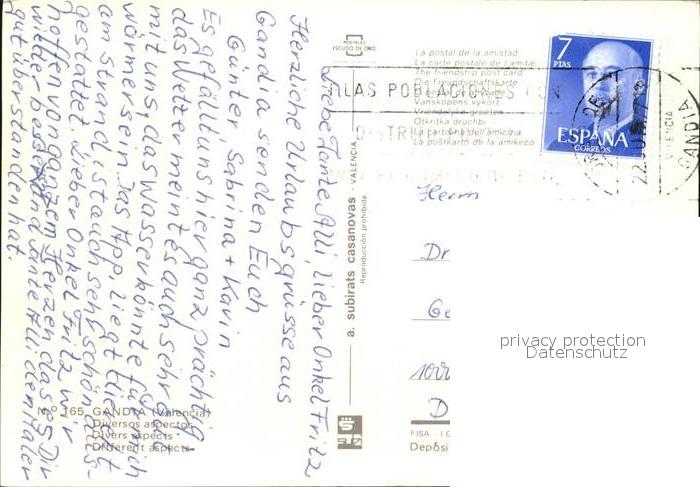 Liebe Tante Alli, lieber Onkel Fritz
Herzliche Urlaubsgrüsse aus
Gandia senden Euch
Sabrina + Karin
Es gefällt uns hier ganz prächtig,
das Wetter meint es auch sehr gut
mit uns, das Wasser könnte für mich
wärmer sein. Das App. liegt direkt
am Strand, ist auch sehr schön aus-
gestattet. Lieber Onkel Fritz, wir
hoffen von ganzem Herzen das es Dir
wieder besser und Tante Alli den
gut überstanden hat.
Nº 165 GANDIA (Valencia)
Diversos aspectos
Divers aspects
Different aspects
a. subirats casanovas - VALENCIA
Reproducción prohibida
POSTALES
ESCUDO DE ORO
La postal de la amistad
La carte postale de l'amitié
The friendship post card
Die Freundschaftskarte
Vanskapens vykort
Vriendelijke groeten
Otkritka druchbi
La cartolina dell'amicizia
La postkarto de la amikeco
LAS POBLACIONES
DISTR
7
PTAS
ESPAÑA
CORREOS
VALENCIA
GANDIA
Herrn
Dr
Ge
D
FISA
Depósi
privacy protection
Datenschutz